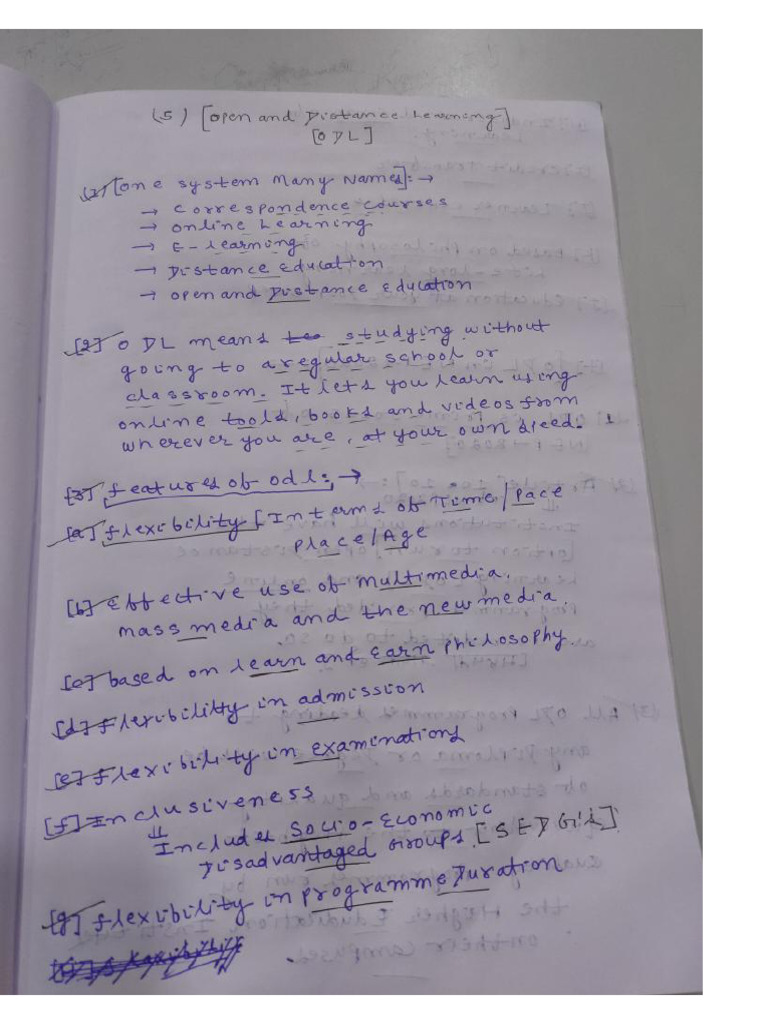 (5) [Open and Distance Learning]
[ODL]
(1) [One system Many Names]:→
→ Correspondence Courses
→ Online Learning
→ E-learning
→ Distance Education
→ Open and Distance Education
[2] ODL means studying without
going to a regular school or
classroom. It lets you learn using
online tools, books and videos from
wherever you are, at your own speed.
[3] features of odl:→
[a] flexibility [In terms of Time/Pace
Place/Age
[b] Effective use of multimedia,
mass media and the new media.
[c] based on learn and earn philosophy.
[d] flexibility in admission
[e] flexibility in examinations
[f] Inclusiveness
⇓
Includes Socio-Economic
Disadvantaged Groups [SEDGs]
[g] flexibility in programme Duration